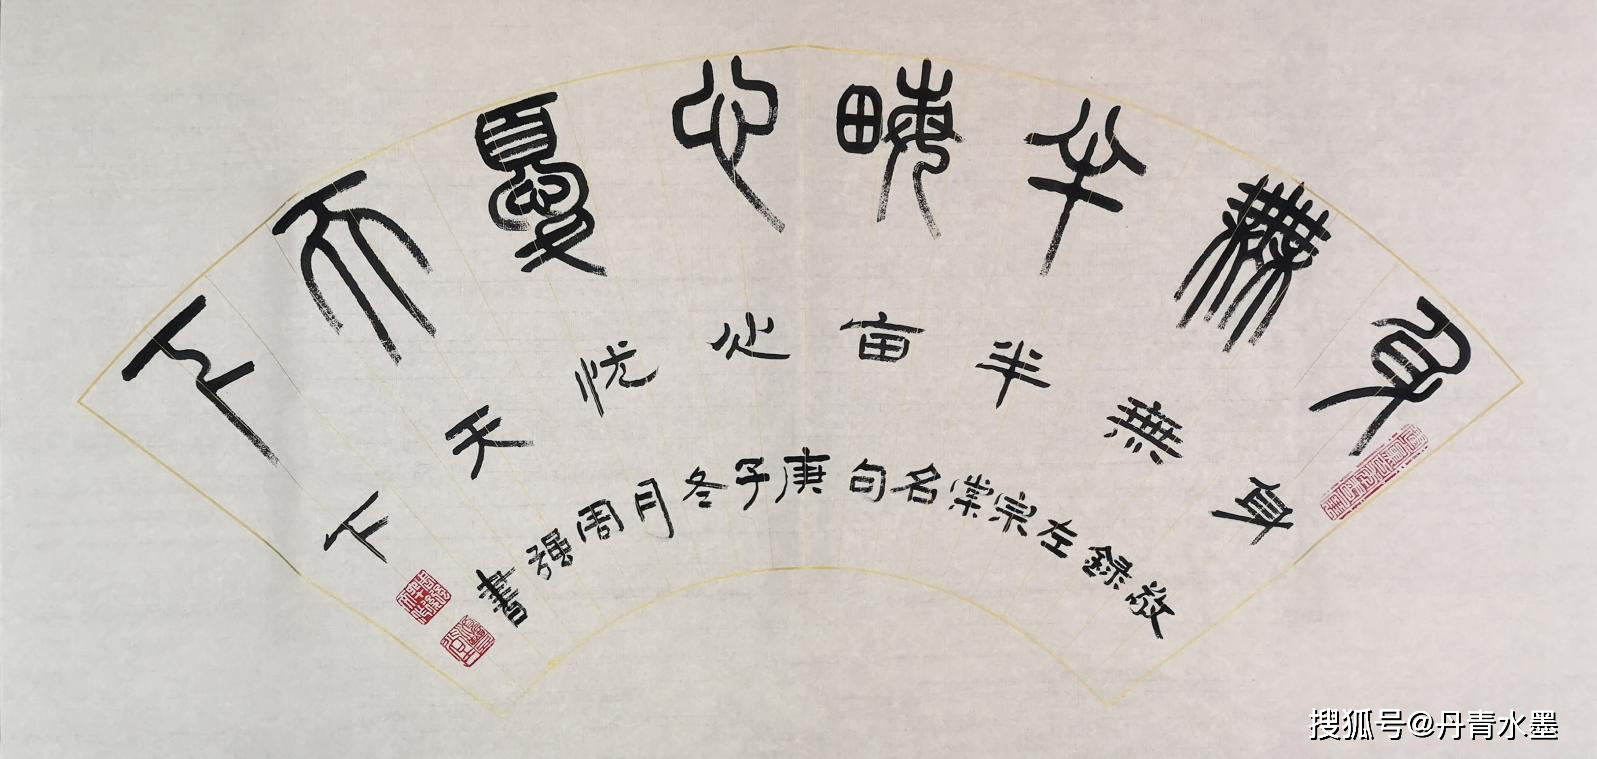 身無半畮心憂天下
身無半亩心忧天下
敬録左宗棠名句庚子冬月周强書
搜狐号@丹青水墨